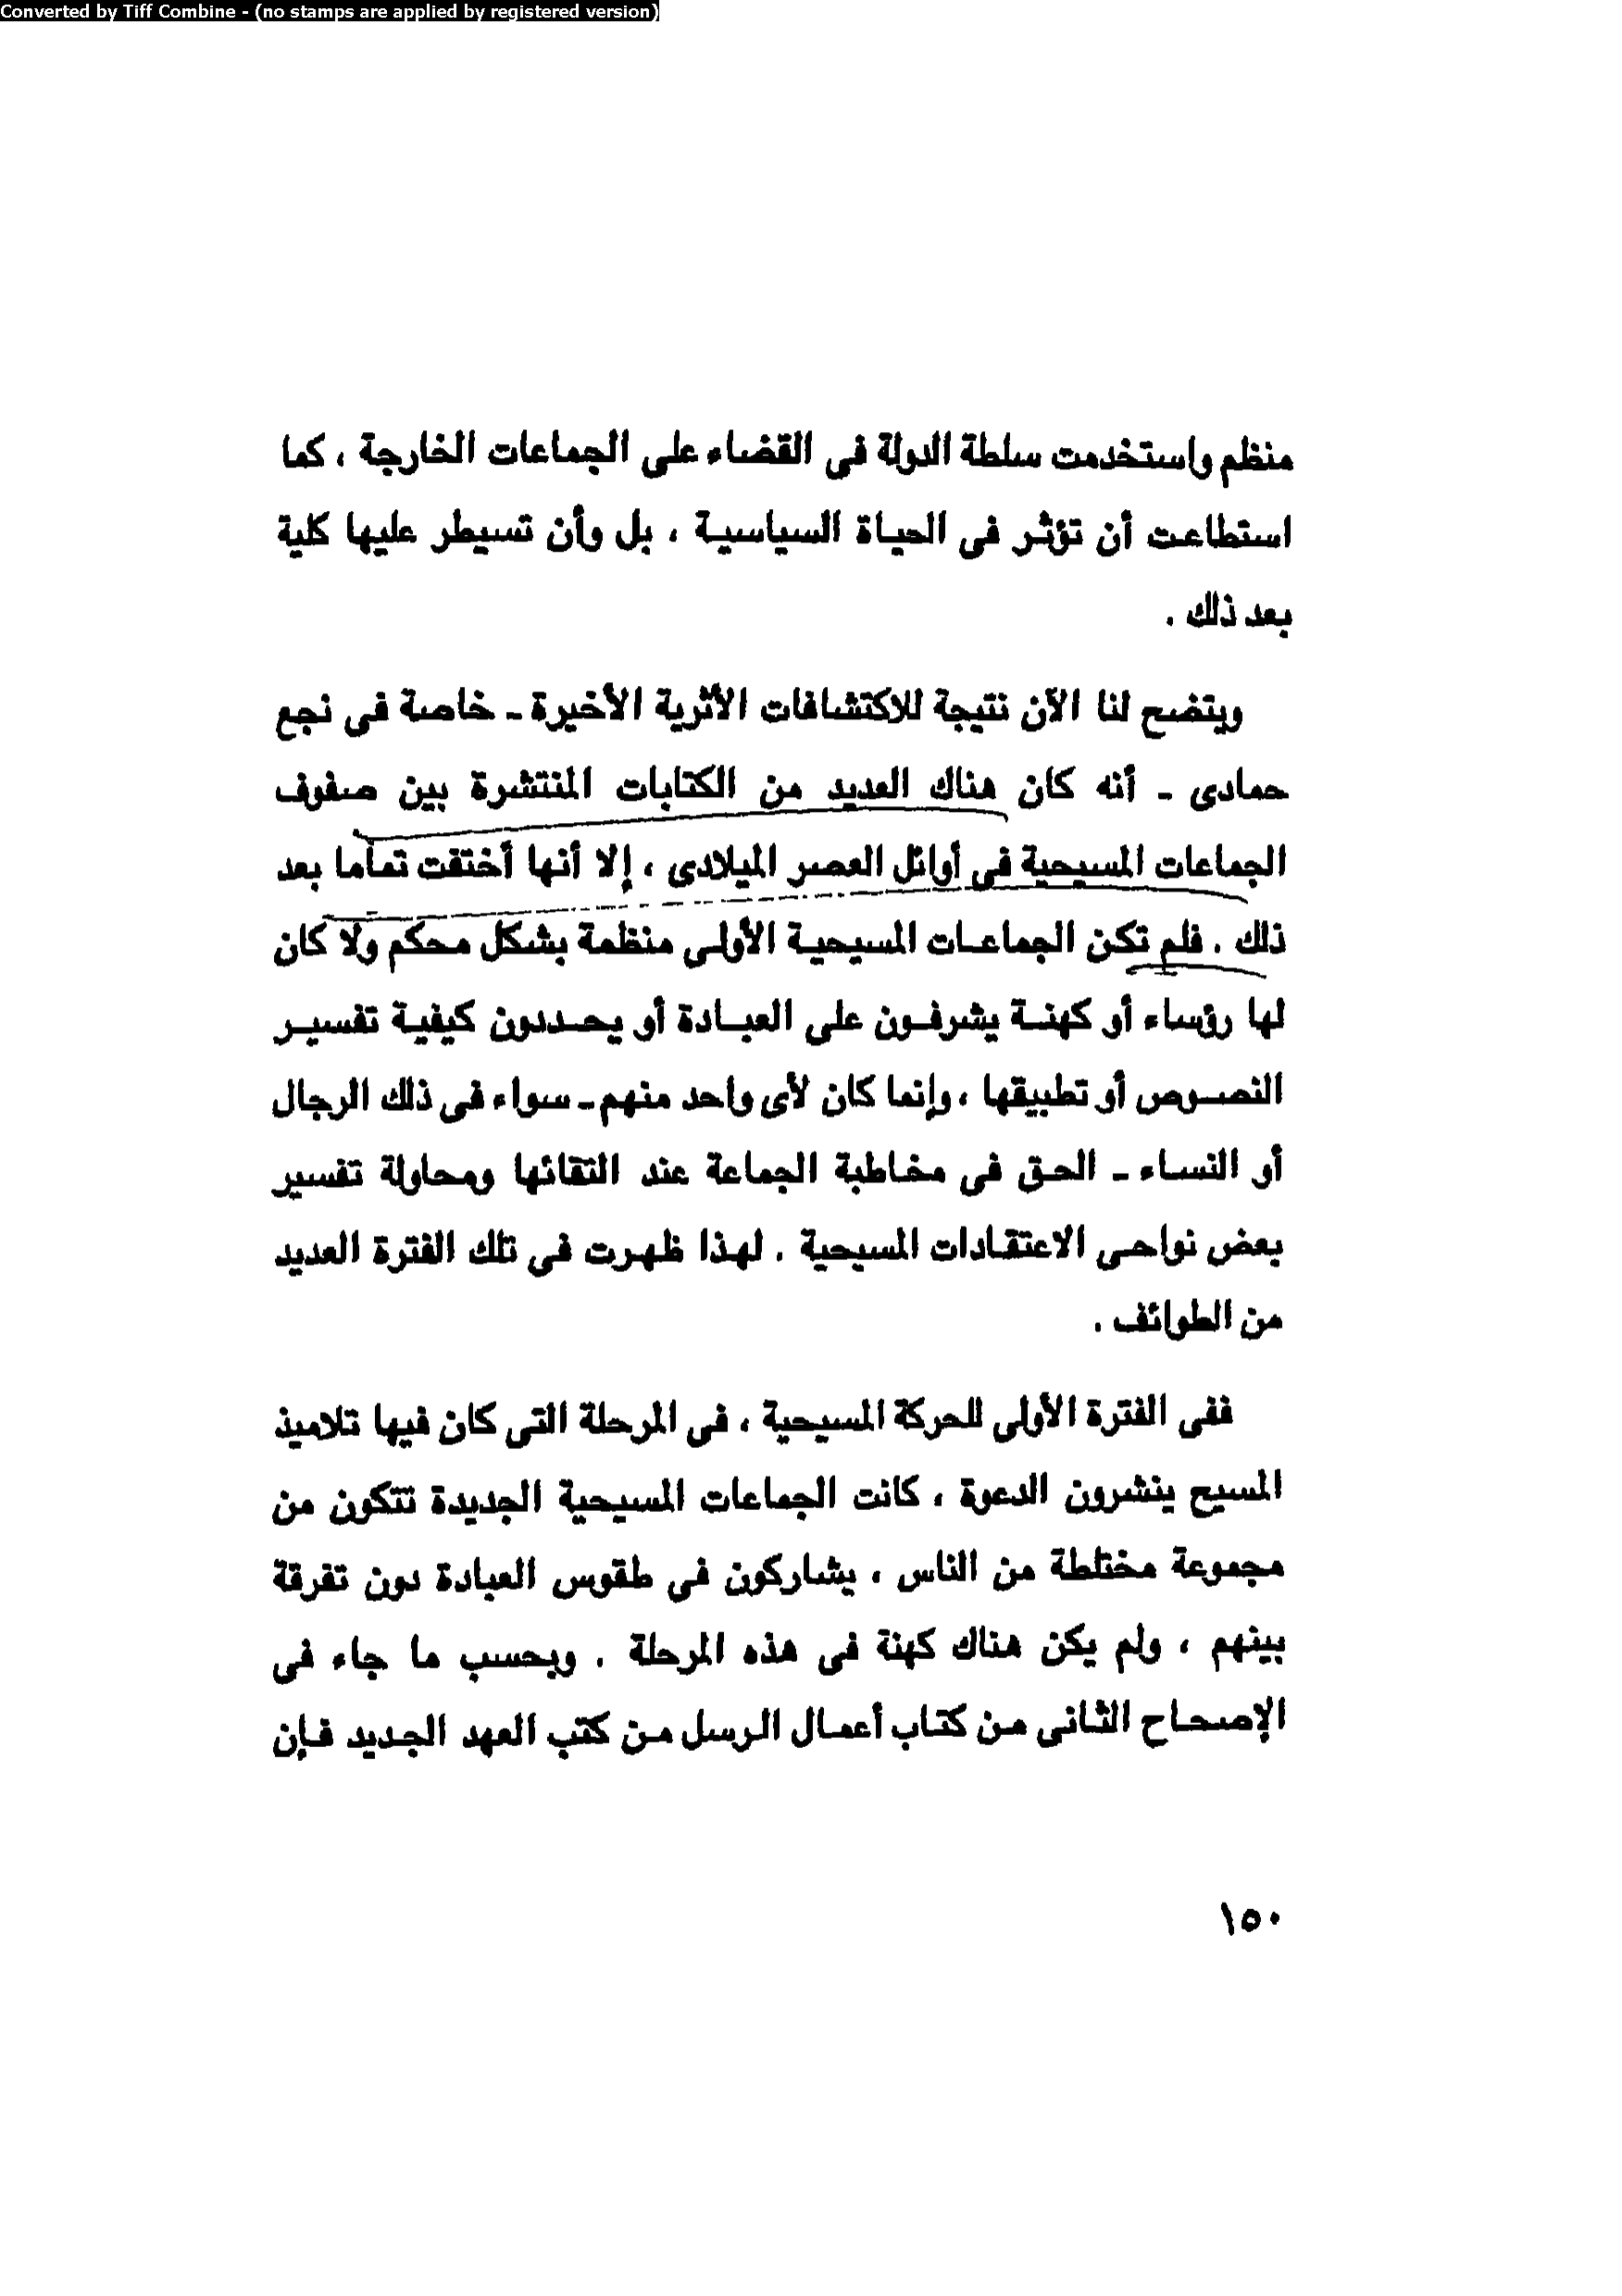 Converted by Tiff Combine - (no stamps are applied by registered version)
منظم واستخدمت سلطة الدولة فى القضاء على الجماعات الخارجة ، كما
استطاعت أن تؤثر فى الحياة السياسية ، بل وأن تسيطر عليها كلية
بعد ذلك .
ويتضح لنا الآن نتيجة للاكتشافات الأثرية الأخيرة ـ خاصة فى نجع
حمادى ـ أنه كان هناك العديد من الكتابات المنتشرة بين صفوف
الجماعات المسيحية فى أوائل العصر الميلادى ، إلا أنها أختفت تماما بعد
ذلك . فلم تكن الجماعات المسيحية الأولى منظمة بشكل محكم ولا كان
لها رؤساء أو كهنة يشرفون على العبادة أو يحددون كيفية تفسير
النصوص أو تطبيقها ، وإنما كان لأى واحد منهم ـ سواء فى ذلك الرجال
أو النساء ـ الحق فى مخاطبة الجماعة عند التقائها ومحاولة تفسير
بعض نواحى الاعتقادات المسيحية . لهذا ظهرت فى تلك الفترة العديد
من الطوائف .
ففى الفترة الأولى للحركة المسيحية ، فى المرحلة التى كان فيها تلاميذ
المسيح ينشرون الدعوة ، كانت الجماعات المسيحية الجديدة تتكون من
مجموعة مختلطة من الناس ، يشاركون فى طقوس العبادة دون تفرقة
بينهم ، ولم يكن هناك كهنة فى هذه المرحلة . وبحسب ما جاء فى
الإصحاح الثانى من كتاب أعمال الرسل من كتب العهد الجديد فإن
١٥٠